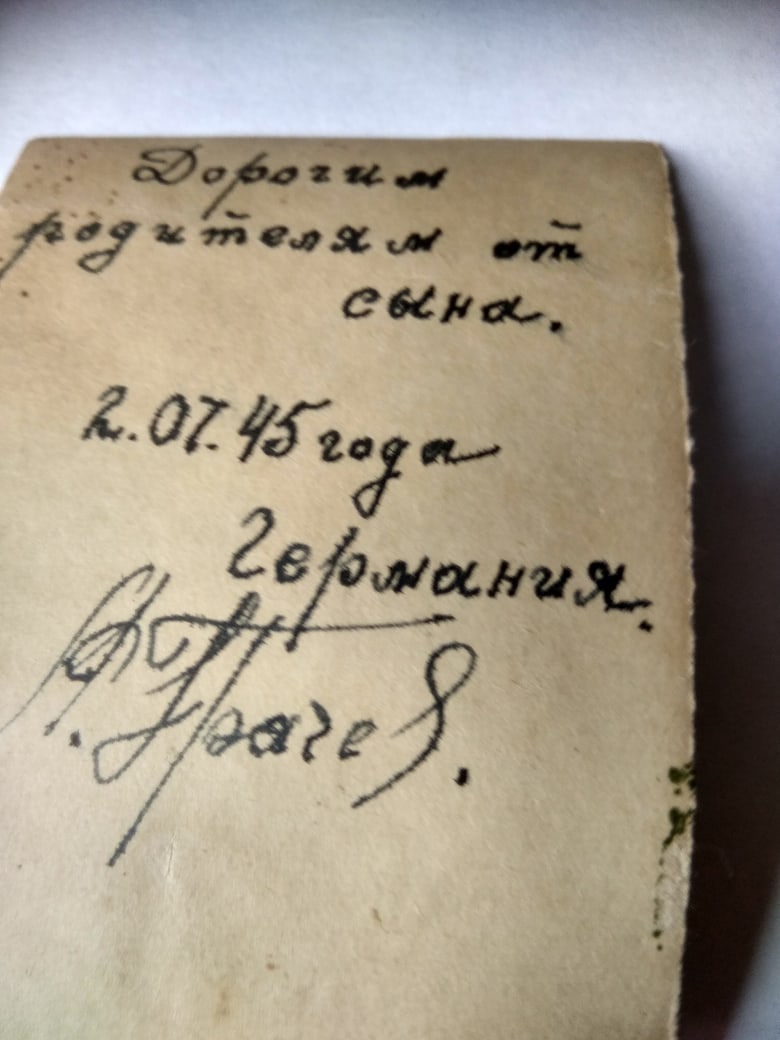 Дорогим
родителям от
сына.
2.07.45 года
Германия.